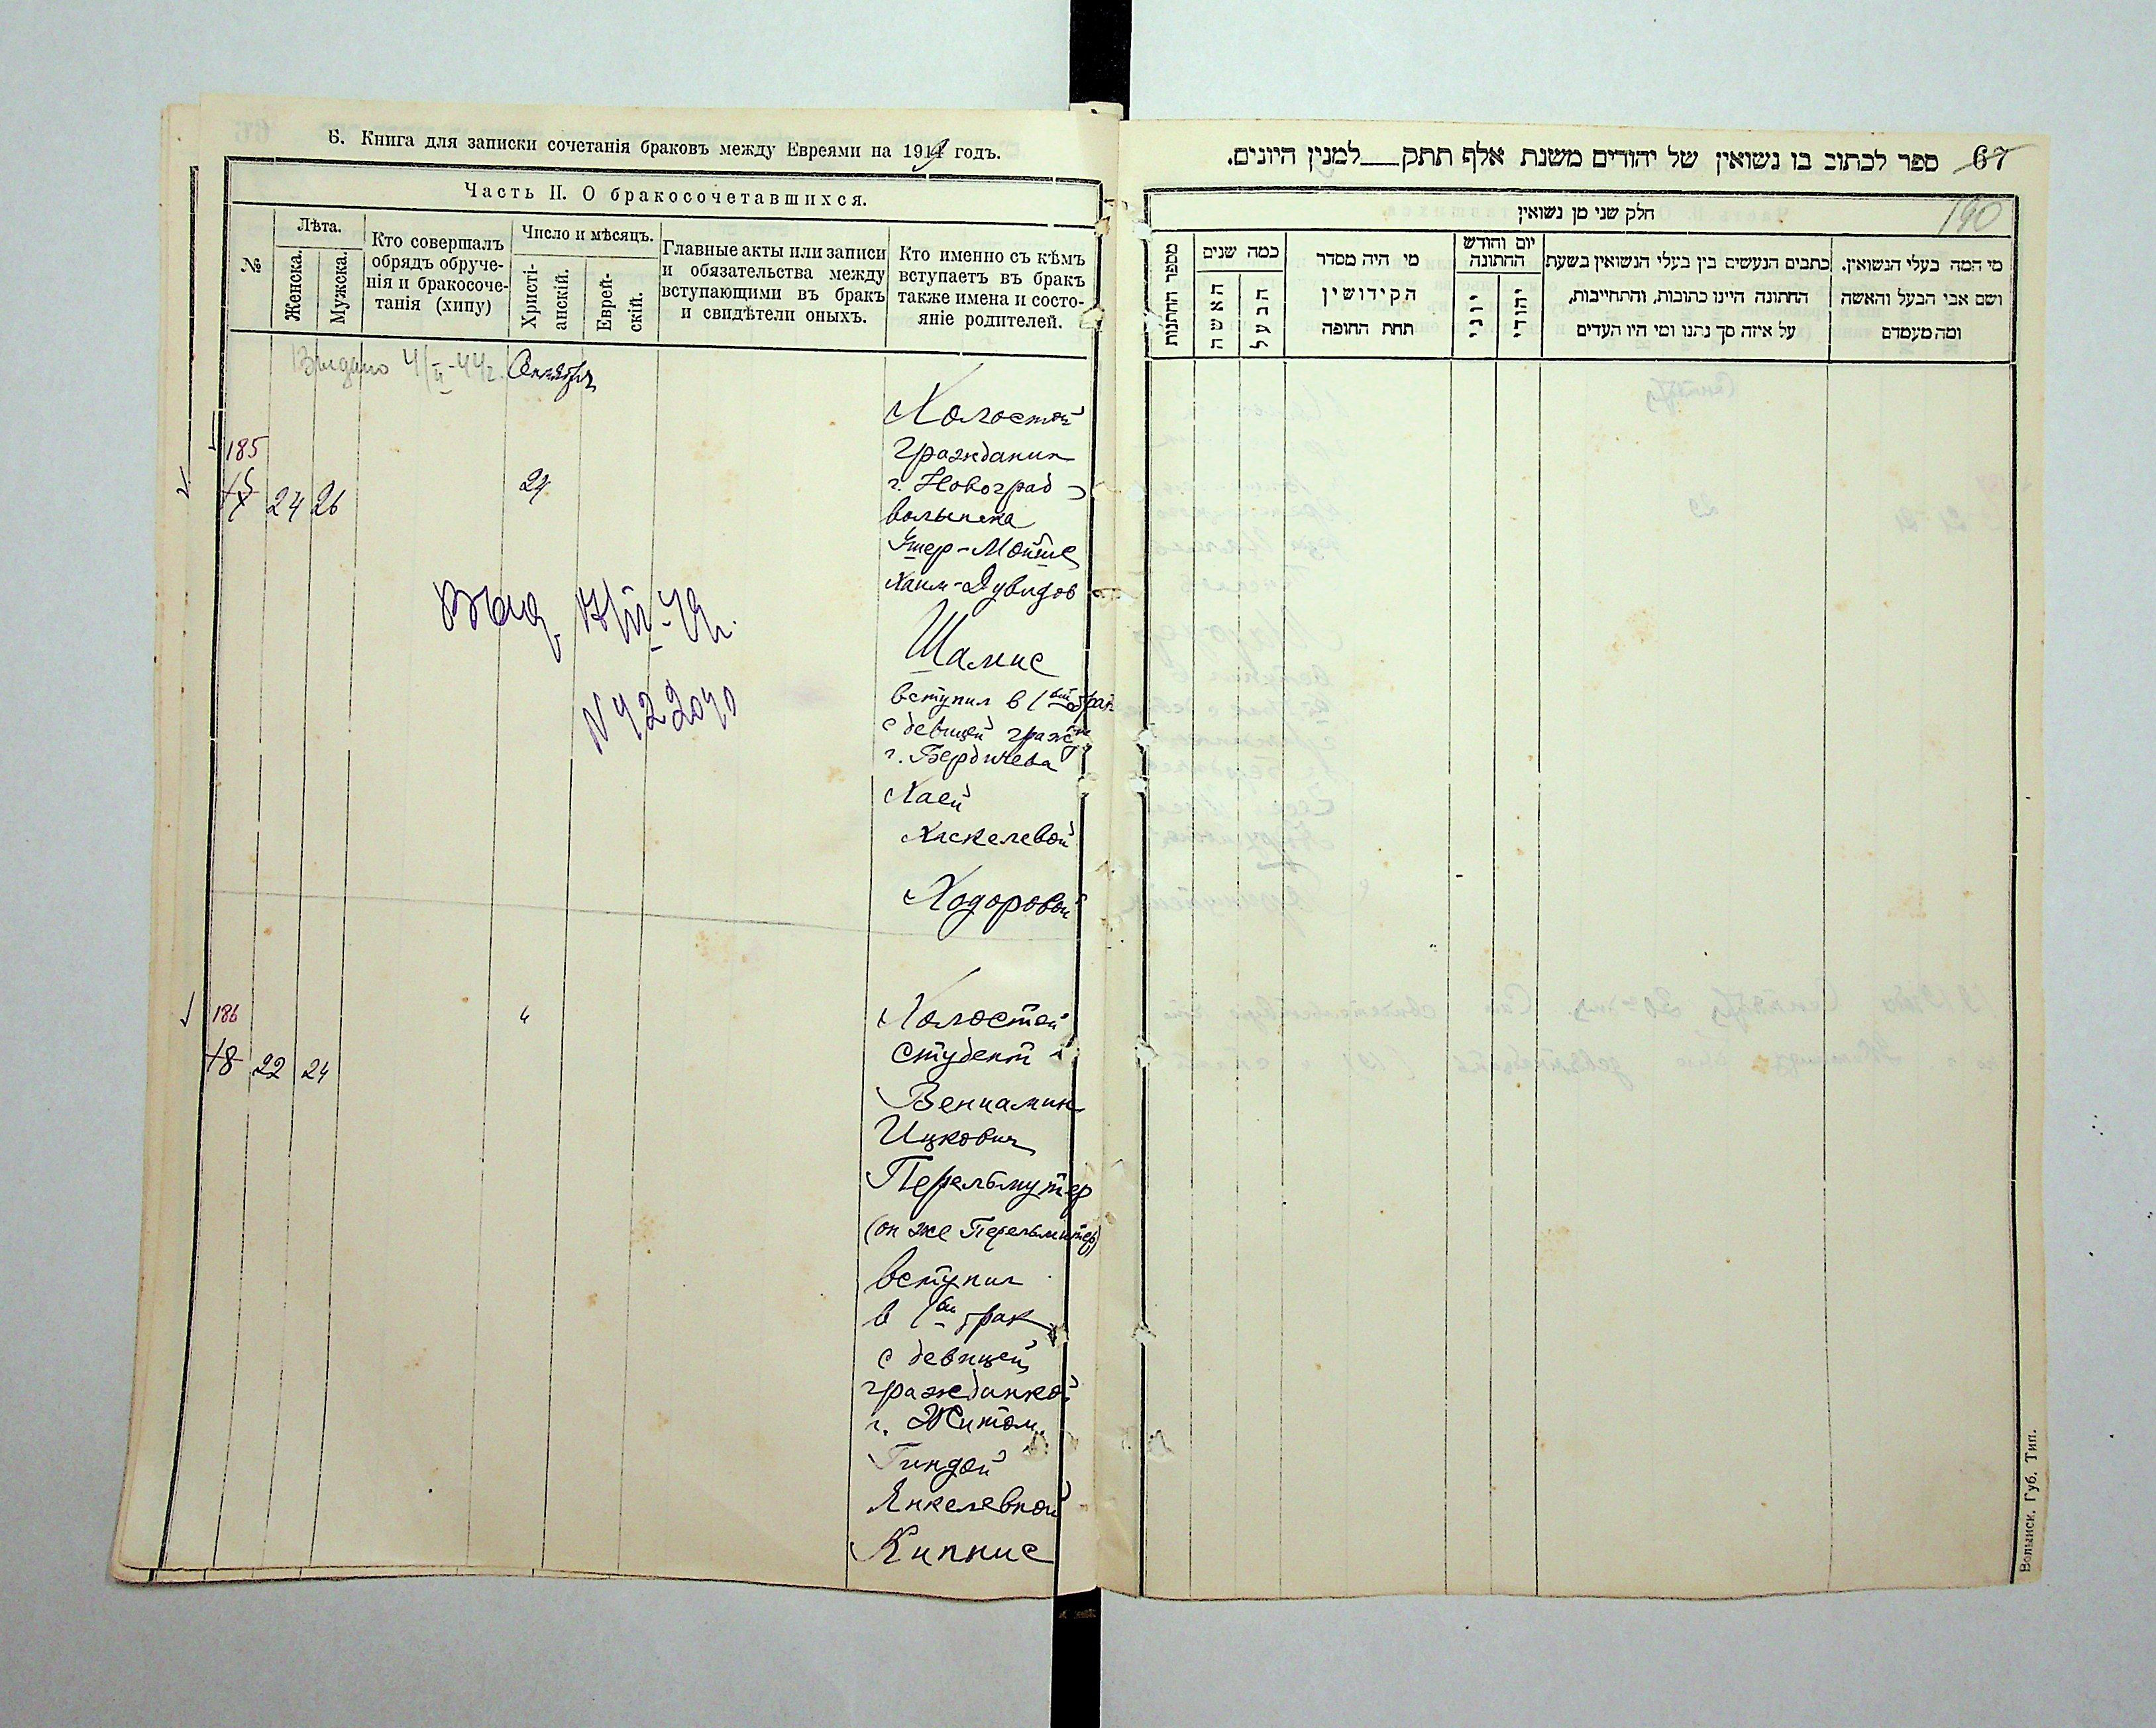 Б. Книга для записки сочетанія браковъ между Евреями на 1919 годъ.
Часть II. О бракосочетавшихся.
№
Лѣта.
Женска.
Мужска.
Кто совершалъ
обрядъ обруче-
нія и бракосоче-
танія (хипу)
Число и мѣсяцъ.
Христі-
анскій.
Еврей-
скій.
Главные акты или записи
и обязательства между
вступающими въ бракъ
и свидѣтели оныхъ.
Кто именно съ кѣмъ
вступаетъ въ бракъ
также имена и состо-
яніе родителей.
Выдано 4/II-44г.
Холостой
185
гражданин
г. Новоград-
24 26 29
волынска
Ушер-Мойше
Хаим-Дувидов
Выд.
Шамис
вступил в 1вый брак
с девицей гражд
г. Бердичева
Хаей
Хаскелевой
Ходоровой
186
Холостой
студент
18 22 24
Вениамин
Ицкович
Перельмутер
(он же Перельмитер)
вступил
в 1ый брак
с девицей
гражданкой
г. Житом.
Гиндой
Янкелевной
Кипнис
67 ספר לכתוב בו נשואין של יהודים משנת אלף תתק___למנין היונים.
190
חלק שני מן נשואין
מספר החתנות
כמה שנים
האשה
הבעל
מי היה מסדר
הקידושין
תחת החופה
יום וחודש
החתונה
יוני
יהודי
כתבים הנעשים בין בעלי הנשואין בשעת
החתונה היינו כתובות, והתחייבות,
על איזה סך נתנו ומי היו העדים
מי המה בעלי הנשואין.
ושם אבי הבעל והאשה
ומה מעמדם
Волынск. Губ. Тип.